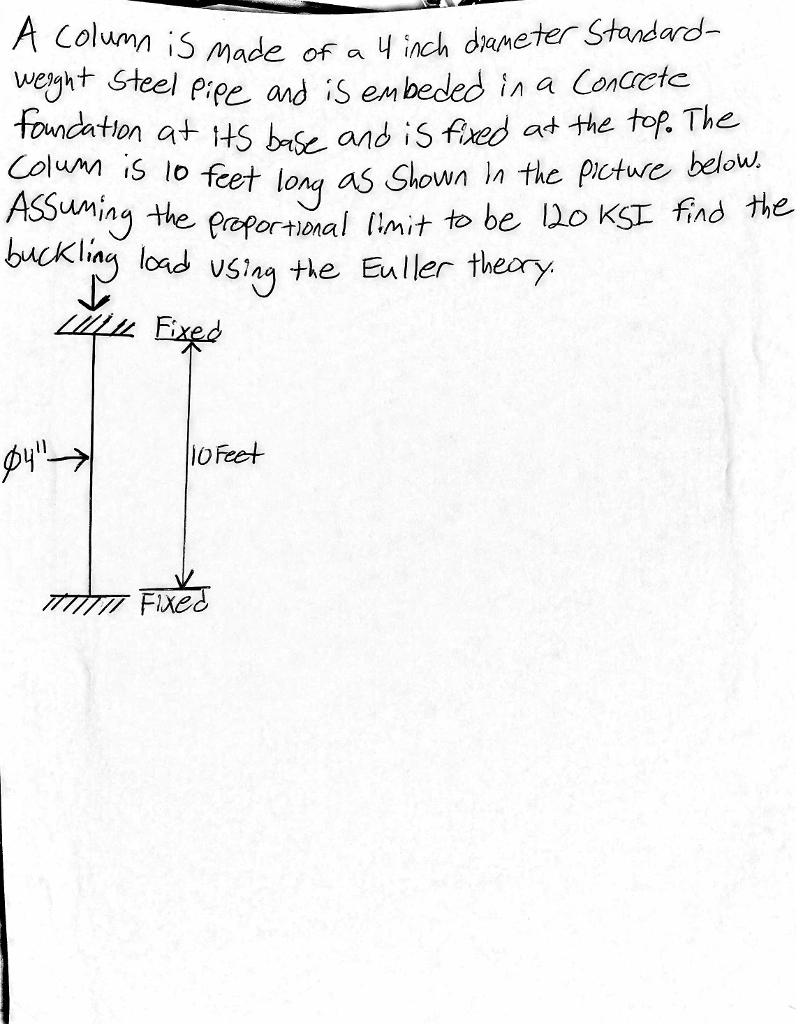 A column is made of a 4 inch diameter Standard-
weight Steel pipe and is embeded in a Concrete
foundation at its base and is fixed at the top. The
Column is 10 feet long as Shown in the picture below.
Assuming the proportional limit to be 120 KSI find the
buckling load using the Euller theory.
Fixed
ϕ4"
10 Feet
Fixed